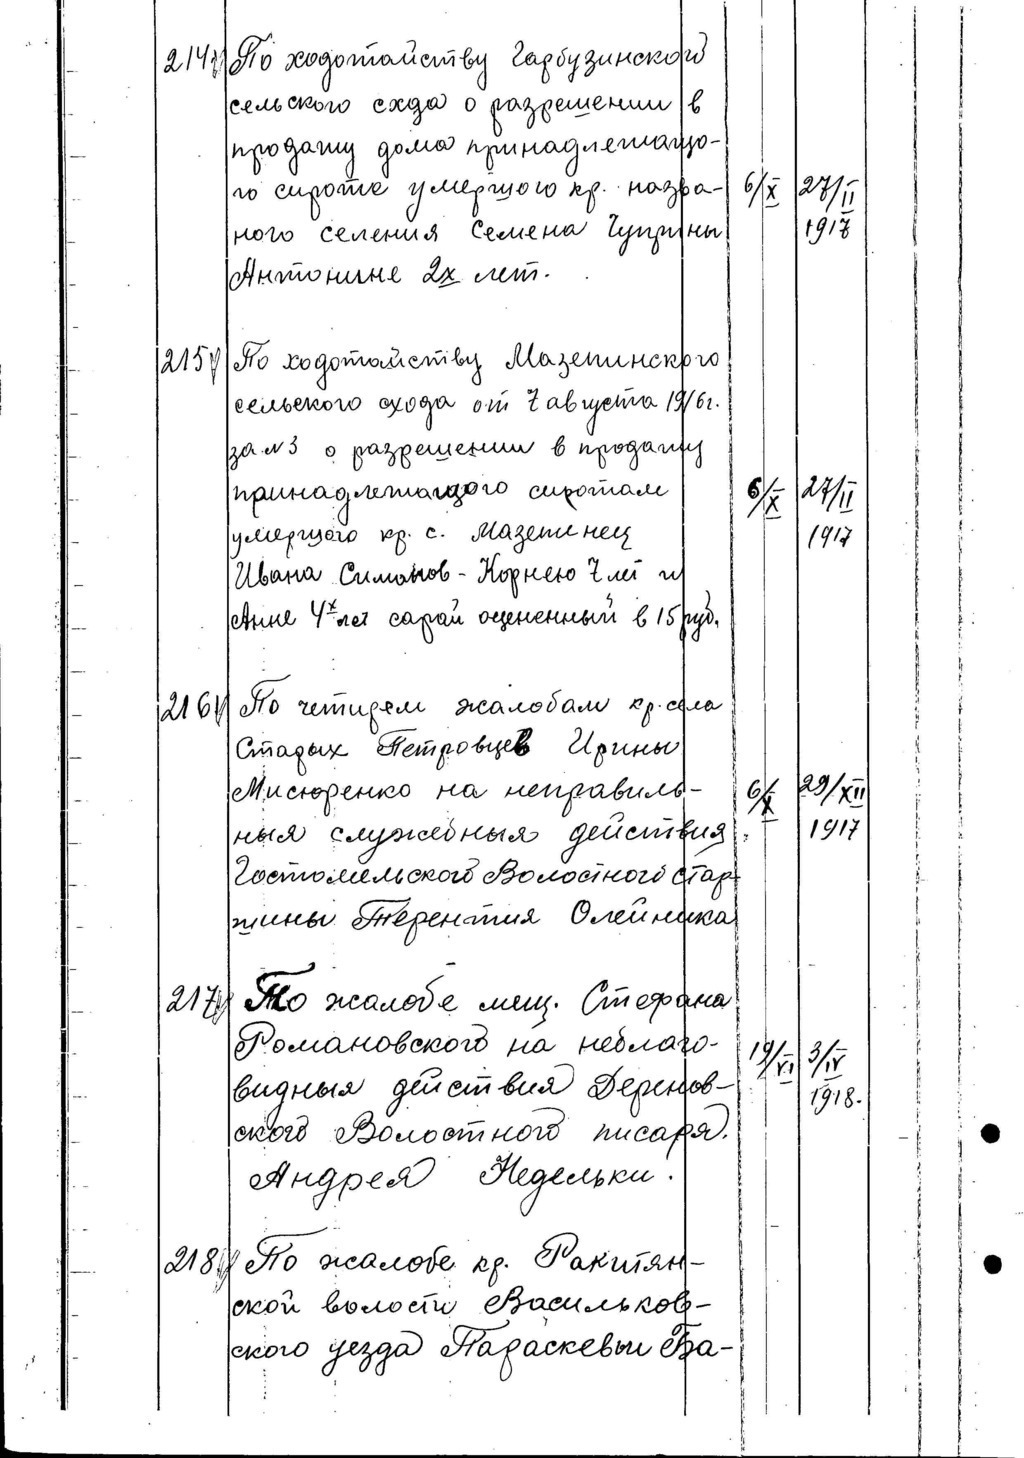 214 По ходотайству Гарбузинского
сельского схда о разрешении в
продажу дома принадлежащо-
го сироте умершого кр. назва- 6/X 27/II
ного селения Семена Чуприны 1917
Антонине 2х лет.
215 По ходотайству Мазепинского
сельского схода от 7 августа 1916г.
за №3 о разрешении в продажу
принадлежащого сиротам 6/X 27/II
умершого кр. с. Мазепинец 1917
Ивана Симонов - Корнею 7 лет и
Анне 4х лет сарай оцененный в 15 руб.
216 По четирем жалобам кр. села
Старых Петровцев Ирины
Мисюренко на неправиль- 6/X 29/XII
ныя служебныя действия 1917
Гостомельского Волостного стар-
шины Терентия Олейника
217 По жалобе мещ. Стефана
Романовского на неблаго- 19/VI 3/IV
видныя действия Дернов- 1918.
ского Волостного писаря.
Андрея Недельки.
218 По жалобе кр. Ракитян-
ской волости Васильков-
ского уезда Параскевы Ба-